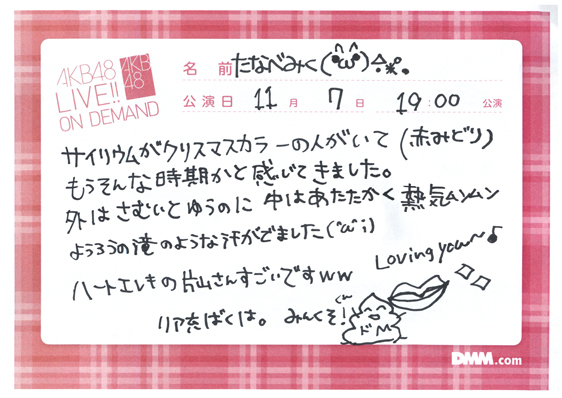 AKB48
LIVE!!
ON DEMAND
AKB
48
名 前 たなべみく(・ω・)
公演日 11月 7日 19:00 公演
サイリウムがクリスマスカラーの人がいて(赤みどり)
もうそんな時期かと感じてきました。
外はさむいとゆうのに 中はあたたかく 熱気ムンムン
ようろうの滝のような汗がでました(^ω^;)
Loving you〜♪
ハートエレキの片山さんすごいですww
リア充ばくは。 みんくそ!
くん
ドM
DMM.com